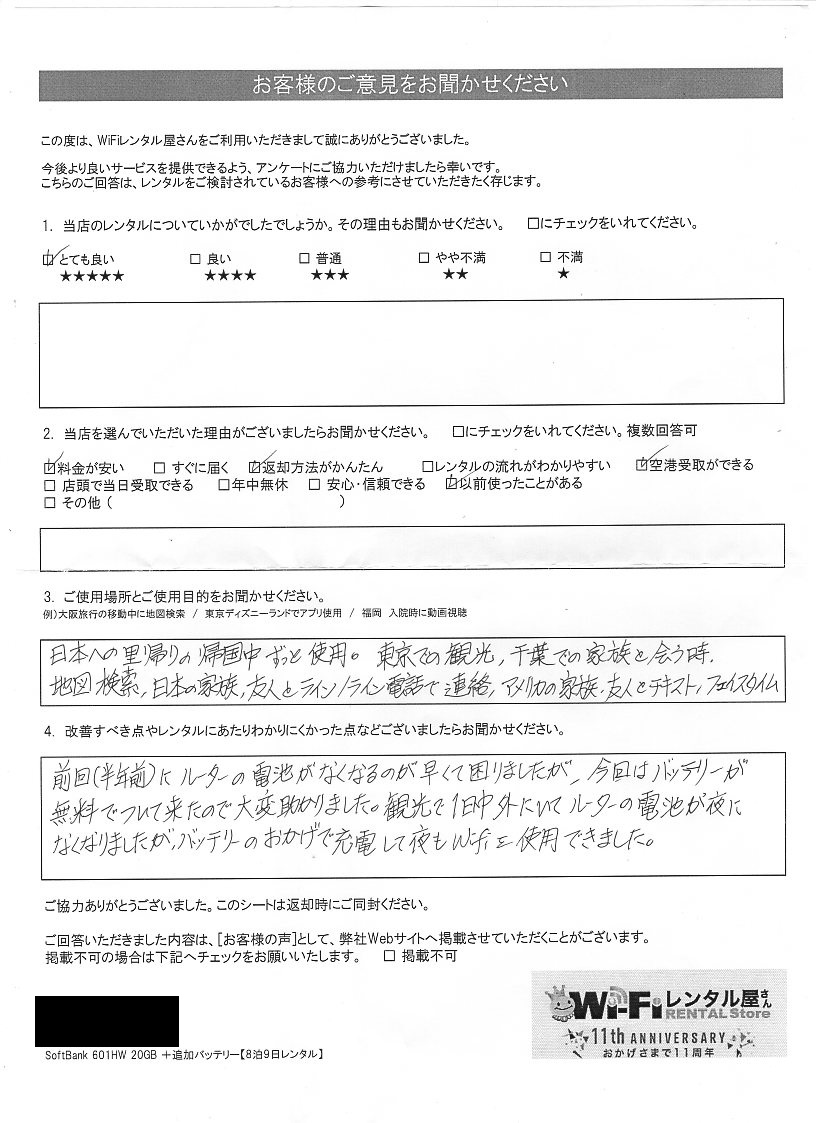 お客様のご意見をお聞かせください
この度は、WiFiレンタル屋さんをご利用いただきまして誠にありがとうございました。
今後より良いサービスを提供できるよう、アンケートにご協力いただけましたら幸いです。
こちらのご回答は、レンタルをご検討されているお客様への参考にさせていただきたく存じます。
1. 当店のレンタルについていかがでしたでしょうか。その理由もお聞かせください。 □にチェックをいれてください。
☑とても良い □ 良い □ 普通 □ やや不満 □ 不満
★★★★★ ★★★★ ★★★ ★★ ★
2. 当店を選んでいただいた理由がございましたらお聞かせください。 □にチェックをいれてください。複数回答可
☑料金が安い □ すぐに届く ☑返却方法がかんたん □レンタルの流れがわかりやすい ☑空港受取ができる
□ 店頭で当日受取できる □年中無休 □ 安心・信頼できる ☑以前使ったことがある
□ その他 ( )
3. ご使用場所とご使用目的をお聞かせください。
例)大阪旅行の移動中に地図検索 / 東京ディズニーランドでアプリ使用 / 福岡 入院時に動画視聴
日本への里帰りの帰国中ずっと使用。東京での観光,千葉での家族と会う時.
地図検索,日本の家族,友人とライン/ライン電話で連絡,アメリカの家族・友人とテキスト,フェイスタイム
4. 改善すべき点やレンタルにあたりわかりにくかった点などございましたらお聞かせください。
前回(半年前)にルーターの電池がなくなるのが早くて困りましたが,今回はバッテリーが
無料でついて来たので大変助かりました。観光で1日中外にいてルーターの電池が夜に
なくなりましたが,バッテリーのおかげで充電して夜もWifiを使用できました。
ご協力ありがとうございました。このシートは返却時にご同封ください。
ご回答いただきました内容は、[お客様の声]として、弊社Webサイトへ掲載させていただくことがございます。
掲載不可の場合は下記へチェックをお願いいたします。 □ 掲載不可
Wi-Fiレンタル屋さん
RENTAL Store
11th ANNIVERSARY
おかげさまで11周年
SoftBank 601HW 20GB +追加バッテリー【8泊9日レンタル】